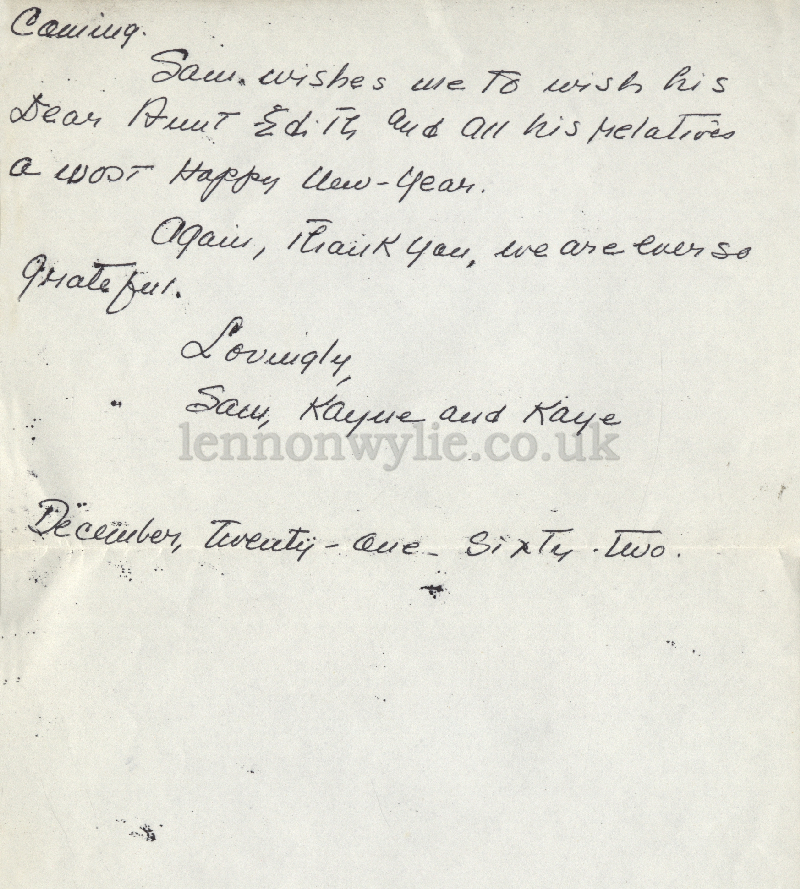 Coming.
Sam. wishes me to wish his
Dear Aunt Edith and all his relatives
a most Happy New-Year.
Again, Thank you, we are ever so
grateful.
Lovingly,
Sam, Kayne and Kaye
lennonwylie.co.uk
December, Twenty-one-Sixty-Two.